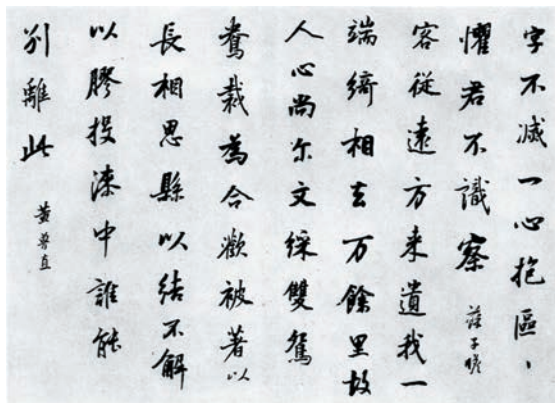 字不减一心抱區〻
懼君不識察 蘇子瞻
客從遠方来遺我一
端綺相去万餘里故
人心尚尔文綵雙鴛
鴦裁為合歡被著以
長相思縣以結不解
以膠投漆中誰能
別離此 黃魯直